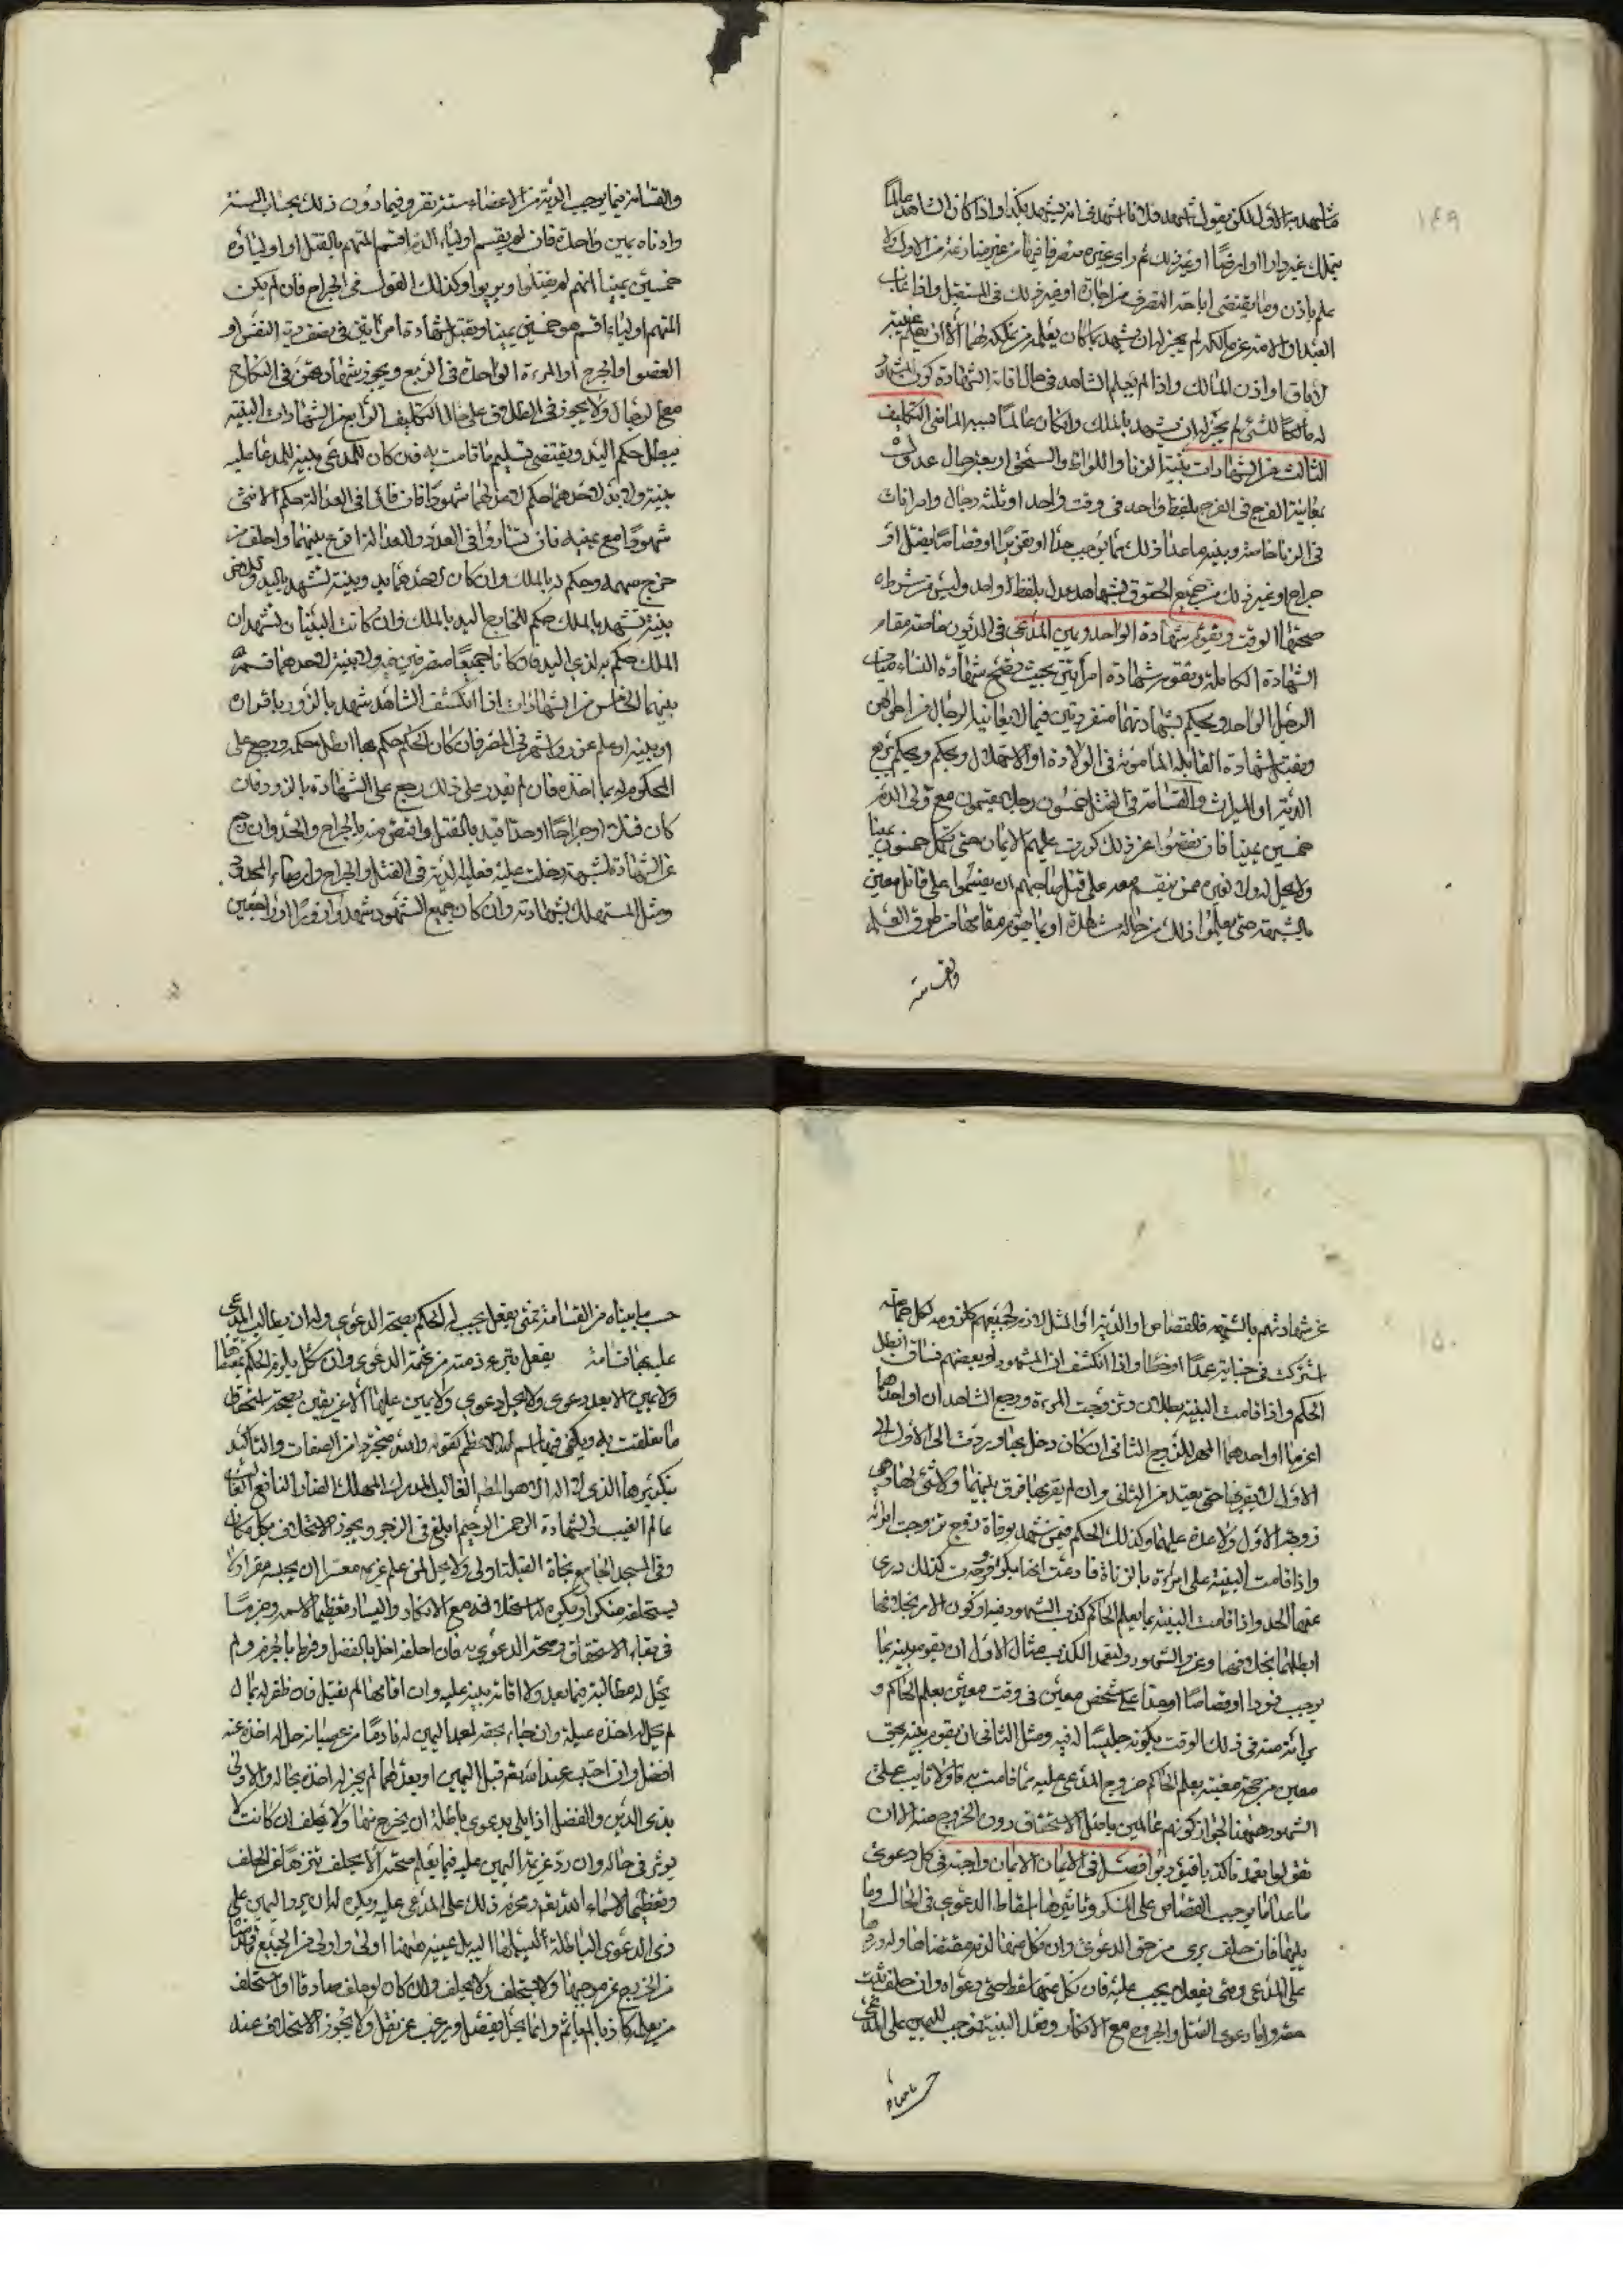 ١٤٩
شهد الاول لكن يقول اشهد فلانا اشهدنى انه يشهد بكذا واذا كان الشاهد عالما
بتملك غيره دارا او ارضا او غير ذلك ثم راى غيره متصرفا فيها من غير منازعة من الاول ولا
علم باذن وما يقتضى اباحة التصرف من اجارة او غير ذلك فى المستقبل واذا غاب
العبد او الامة عن مالكه لم يجز له ان يشهد بما كان يعلمه من تملكه لهما الا ان يعلم غيبته
لاباق او اذن المالك واذا لم يعلم الشاهد فى حال اقامة الشهادة كون المشهود
له مالكا للشئ لم يجز له ان يشهد بالملك وان كان عالما سببه الماضى التكليف
الثالث من الشهادات بينة الزنا واللواط والسحق اربعة رجال عدول
بمعاينة الفرج فى الفرج بلفظ واحد فى وقت واحد او ثلثة رجال وامراتان
فى الزنا خاصة وبينة ما عدا ذلك مما يوجب حدا او تعزيرا او قصاصا بقتل او
جراح او غير ذلك من جميع الحقوق شاهدا عدل بلفظ واحد وليس من شرط
صحتها الوقت ويقوم شهادة الواحد ويمين المدعى فى الديون خاصة مقام
الشهادة الكاملة ويقوم شهادة امراتين بحيث يصح شهادة النساء مقام
الرجل الواحد ويحكم بشهادتهما منفردتين فيما لا يعاينه الرجال من احوالهن
ويقبل شهادة القابلة المامونة فى الولادة او الاستهلال ويحكم بربع
الدية او الميراث والقسامة فى القتل خمسون رجلا يقسمون مع ولى الدم
خمسين يمينا فان نقصوا عن ذلك كررت عليهم الايمان حتى تكمل خمسون يمينا
ولا يحل له ولا لغيره ممن يقسم معه على قتل صاحبهم ان يقسموا على قاتل معين
بالشبهة حتى يعلموا ذلك من حاله مشاهدة او بما يقوم مقامها من طرق العلم
والقسامة
والقسامة فيما يوجب الدية من الاعضاء ستة نفر وفيما دون ذلك بحساب الستة
وادناه يمين واحدة فان لم يقسم اولياء الدم اقسم المتهم بالقتل او اولياؤه
خمسين يمينا انهم لم يقتلوا وبريوا وكذلك القول فى الجراح فان لم يكن
المتهم اولياء اقسم هو خمسين يمينا ويقبل شهادة امراتين فى نصف دية النفس او
العضو او الجرح او المرءة الواحدة فى الربع ويجوز شهادتهن فى النكاح
مع الرجال ولا يجوز فى الطلاق على حال التكليف الرابع من الشهادات البينة
يبطل حكم اليد ويقتضى تسليم ما قامت به فمن كان للمدعى بينة وللمدعا عليه
بينة ولا يد لاحدهما حكم لاعدلهما شهودا فان تساويا فى العدالة حكم لاكثر
شهودا مع يمينه فان تساووا فى العدد والعدالة اقرع بينهما واحلف من
خرج سهمه وحكم له بالملك وان كان لاحدهما يد وبينة تشهد باليد وللاخر
بينة تشهد بالملك حكم للخارج اليد بالملك وان كانت البينتان تشهدان
الملك حكم به لذى اليد فان كانا جميعا متصرفين فيه ولا بينة لاحدهما قسم
بينهما الخامس من الشهادات اذا انكشف ان الشاهد شهد بالزور باقراره
او ببينة او علم عزر واشهر فى المصر فان كان الحاكم حكم بها ابطل حكمه ورجع على
المحكوم له بما اخذه فان لم يقدر على ذلك رجع على الشهادة بالزور فان
كان قتلا او جراحا او حدا قيد بالقتل واقتص منه بالجراح والحد وان رجع
عن الشهادة لشبهة دخلت عليه فعليه الدية فى القتل والجراح وارضاء المحدود
ومثل المستهلك بشهادته وان كان جميع الشهود شهدوا زورا او راجعين
١٥٠
عن شهادتهم بالشبهة فالقصاص او الدية او المثل لازم لجميعهم كلزومه لكل جماعة
اشتركت فى جناية عمدا او خطا واذا انكشف ان الشهود او بعضهم فساق ابطل
الحكم واذا قامت البينة بطلاق وتزوجت المرءة ورجع الشاهدان او احدهما
اغرما او احدهما المهر للزوج الثانى ان كان دخل بها وردت الى الاول
الاول لا يقربها حتى يعتد من الثانى وان لم يقربها فرق بينهما ولا شئ لها وهى
زوجة الاول ولا عدة عليها وكذلك الحكم فيمن شهد بوفاة زوج تزوجت امراته
واذا قامت البينة على امرءة بالزناة فادعت انها بكر فوجدت كذلك درى
عنها الحد واذا قامت البينة بما يعلم الحاكم كذب الشهود فيه او كون الامر بخلافها
ابطلها بخلافها وعزر الشهود لتعمد الكذب مثال الاول ان يقوم بينة بما
يوجب قودا او قصاصا او حدا على شخص معين فى وقت معين يعلم الحاكم
براءته منه فى ذلك الوقت بكونه جليسا له فيه ومثل الثانى ان يقوم بينة بحق
معين من جهة معينة يعلم الحاكم خروج المدعى عليه مما قامت به
الشهود ههنا لجواز كونهم عالمين باصل الاستحقاق دون الخروج منه الا ان
فصل فى الايمان الايمان واجبة فى كل دعوى
ما عدا ما يوجب القصاص على المنكر وتاثيرها اسقاط الدعوى فى الحال وما
يليها فان حلف برى من حق الدعوى وان نكل عنها لزمه مقتضاها وله ردها
على المدعى ومتى يفعل يجب عليه فان نكل عنها سقط حق دعواه وان حلف ثبت
حقه واما دعوى القتل والجروح مع الانكار وفقد البينة فوجب لليمين على المدعى
حسب ما بيناه
حسب ما بيناه من القسامة فمتى يفعل يجب له الحكم بصحة الدعوى وله ان يطالب المدعى
عليه بها قسامة يفعل يبرء ذمته من تهمة الدعوى وان نكل يلزمه الحكم بمقتضاها
ولا يمين الا بعد دعوى ولا يحل دعوى ولا يمين عليها الا عن يقين بصحة استحقاق
ما تعلقت به ويكفى فيها اسم الله الاعظم كقوله والله مجردا من الصفات والتاكيد
بتكريرها الذى لا اله الا هو الطالب الغالب المدرك المهلك الضار النافع
عالم الغيب والشهادة الرحمن الرحيم ابلغ فى الزجر ويجوز الاستحلاف بكل مكان
وفى المسجد الجامع تجاة القبلة اولى ولا يحل لمن علم غريمه معسرا ان يحبسه مقرا ولا
يستحلفه منكرا ويكره له استحلافه مع الانكار واليسار تعظيما لاسمه وحرصا
فى بقاء الاستحقاق وصحة الدعوى به فان احلفه اخل بالفضل وفرط بالحزم ولم
يحل له مطالبته فيما بعد ولا اقامة بينة عليه وان اقامها لم يقبل فان ظفر له بمال
لم يحل له اخذه عيلة وان جاء بحقه بعد اليمين له نادما من عصيانه حل له اخذه منه
افضل وان احتسبه عند الله تعم قبل اليمين او بعدها لم يجز له اخذه بحال والاولى
بذى الدين والفضل اذا بلى بدعوى باطلة ان يخرج منها ولا يحلف ان كانت لا
يوثر فى حاله وان رد غريمه اليمين عليه فيما يعلم صحته الا يحلف تنزها عن الحلف
وتعظيما لاسماء الله تعم ويحرم ذلك على المدعى عليه ويكره له ان يرد اليمين على
ذى الدعوى الباطلة
من الخروج عن موجبها ولا يستحلف ولا يحلف والد كان لو حلف صادقا او استحلف
ولا يجوز الاستحلاف عند